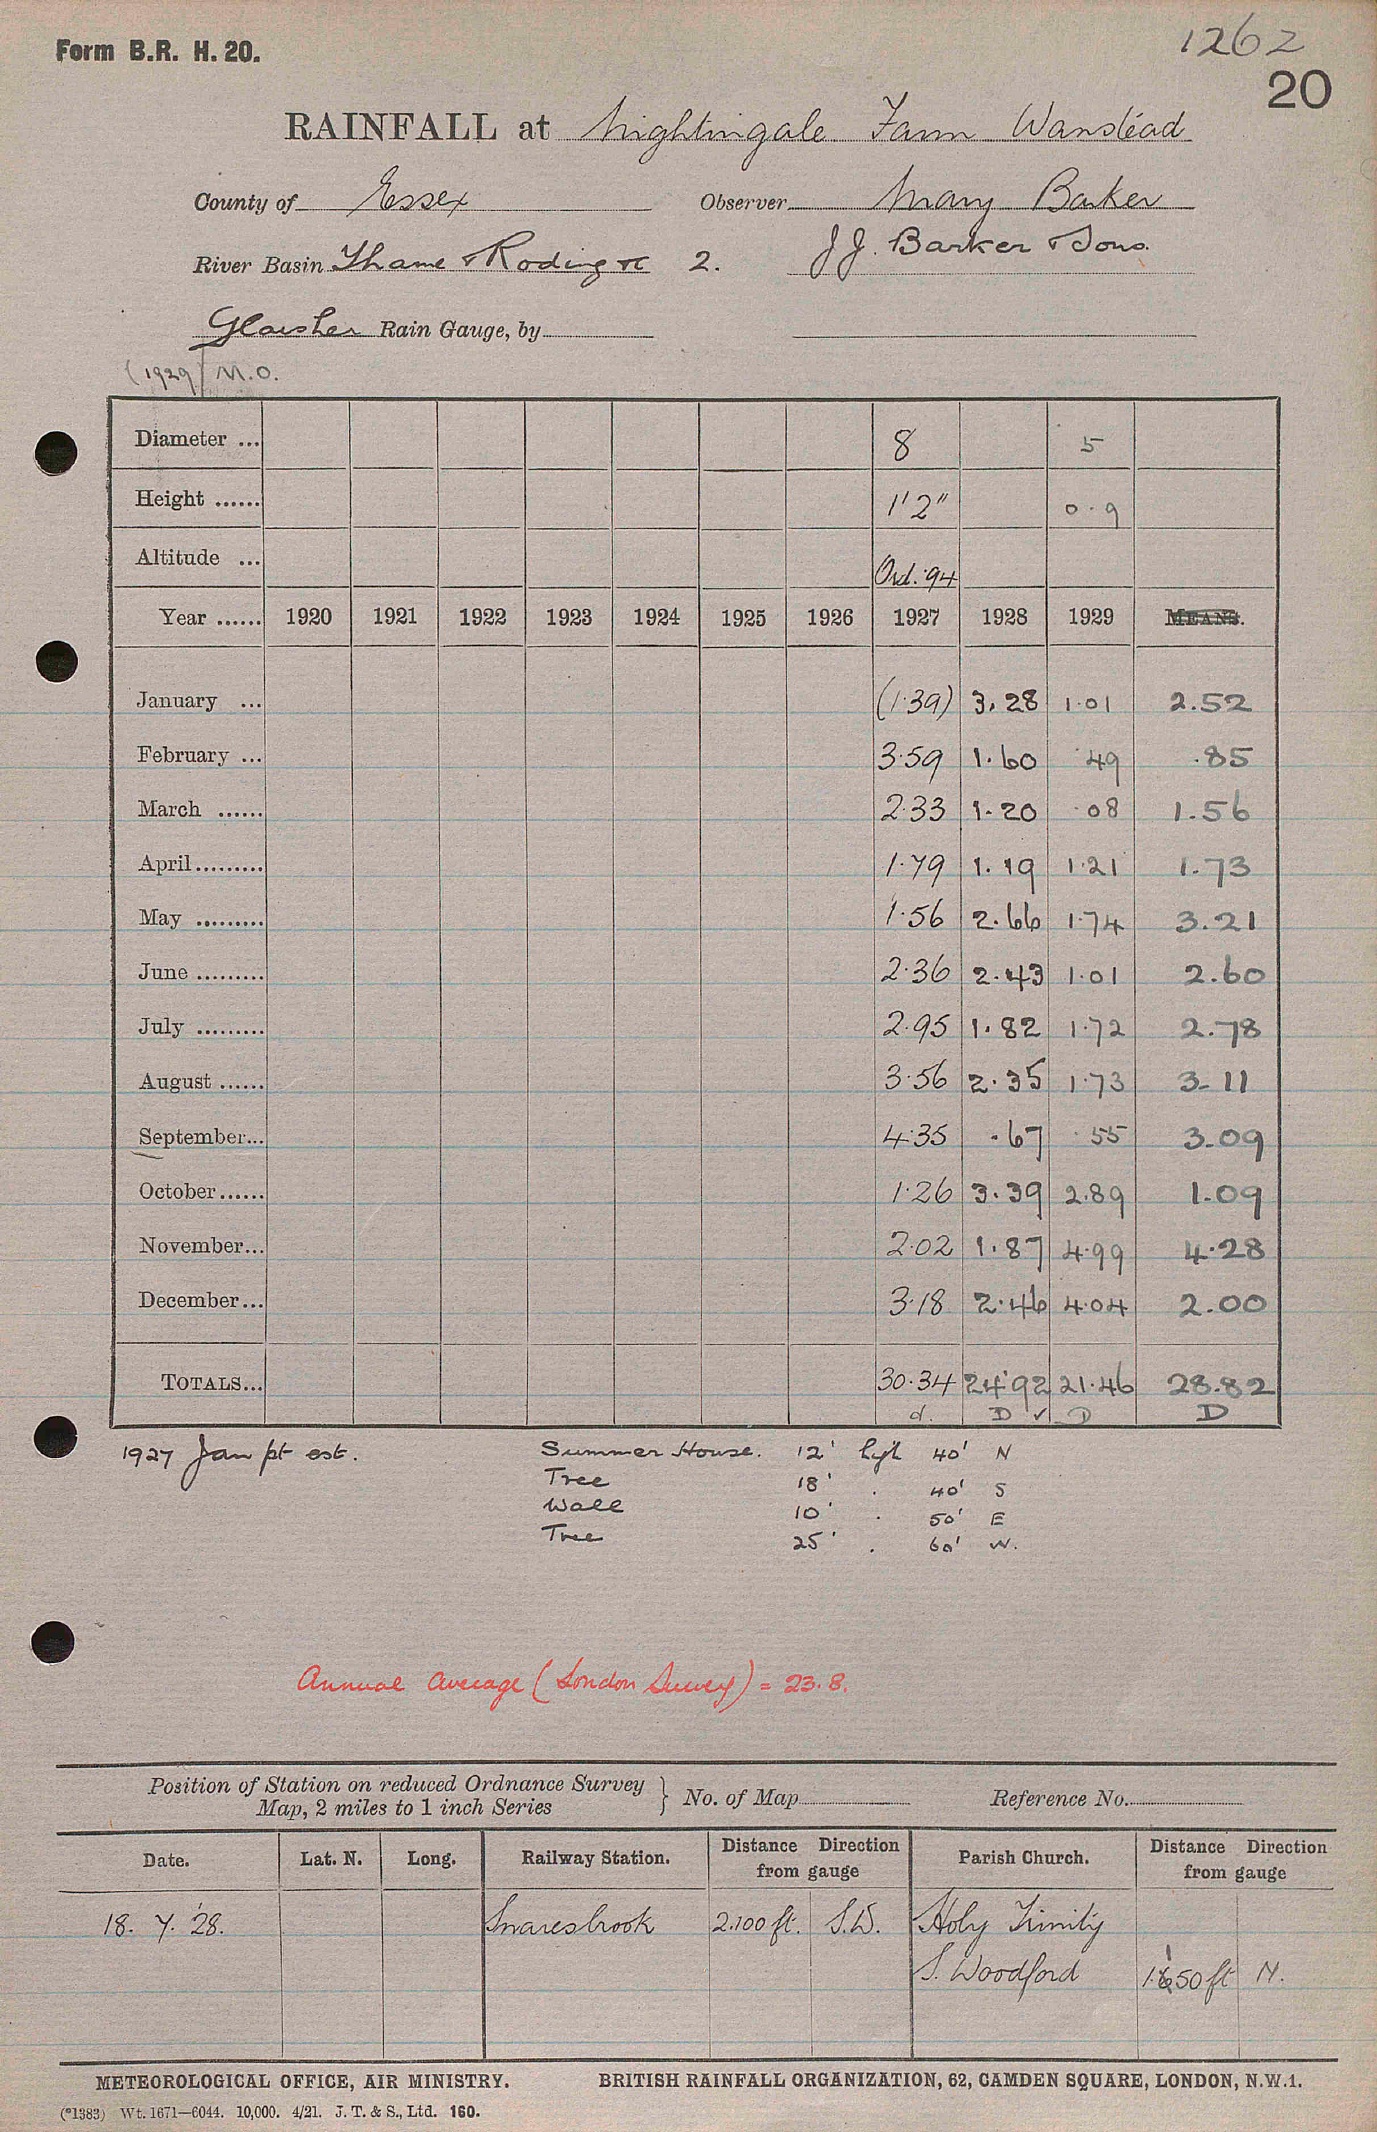 Form B.R. H. 20.
1262
20
RAINFALL at Nightingale Farm Wanstead
County of Essex Observer Mary Barker
River Basin Thame & Roding &c 2. J.J. Barker & Sons.
Glaisher Rain Gauge, by
(1929) M.O.
Diameter ... 8 5
Height ...... 1'2" 0.9
Altitude ... Ord. 94
Year ...... 1920 1921 1922 1923 1924 1925 1926 1927 1928 1929 MEANS.
January ... (1.39) 3.28 1.01 2.52
February ... 3.59 1.60 .49 .85
March ...... 2.33 1.20 .08 1.56
April ......... 1.79 1.19 1.21 1.73
May ......... 1.56 2.66 1.74 3.21
June ......... 2.36 2.43 1.01 2.60
July ......... 2.95 1.82 1.72 2.78
August ...... 3.56 2.35 1.73 3.11
September... 4.35 .67 .55 3.09
October...... 1.26 3.39 2.89 1.09
November... 2.02 1.87 4.99 4.28
December... 3.18 2.46 4.04 2.00
TOTALS... 30.34 24.92 21.46 28.82
d. D ✓ D D
1927 Jan pt est. Summer House. 12' high 40' N
Tree 18' . 40' S
Wall 10' . 50' E
Tree 25' . 60' W.
Annual Average (London Survey) = 23.8.
Position of Station on reduced Ordnance Survey
Map, 2 miles to 1 inch Series } No. of Map Reference No.
Date. Lat. N. Long. Railway Station. Distance Direction from gauge Parish Church. Distance Direction from gauge
18. 7. '28. Snaresbrook 2.100 ft. S.W. Holy Trinity
S. Woodford 1.150 ft N.
METEOROLOGICAL OFFICE, AIR MINISTRY. BRITISH RAINFALL ORGANIZATION, 62, CAMDEN SQUARE, LONDON, N.W.1.
(*1383) Wt. 1671—6044. 10,000. 4/21. J. T. & S., Ltd. 160.